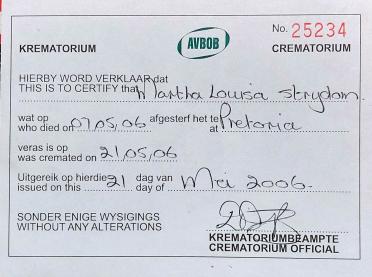 No. 25234
KREMATORIUM AVBOB CREMATORIUM
HIERBY WORD VERKLAAR dat
THIS IS TO CERTIFY that Martha Louisa Strydom
wat op afgesterf het te
who died on 07,05,06 at Pretoria
veras is op
was cremated on 21,05,06
Uitgereik op hierdie dag van
issued on this 21 day of Mei 2006.
SONDER ENIGE WYSIGINGS
WITHOUT ANY ALTERATIONS
KREMATORIUMBEAMPTE
CREMATORIUM OFFICIAL